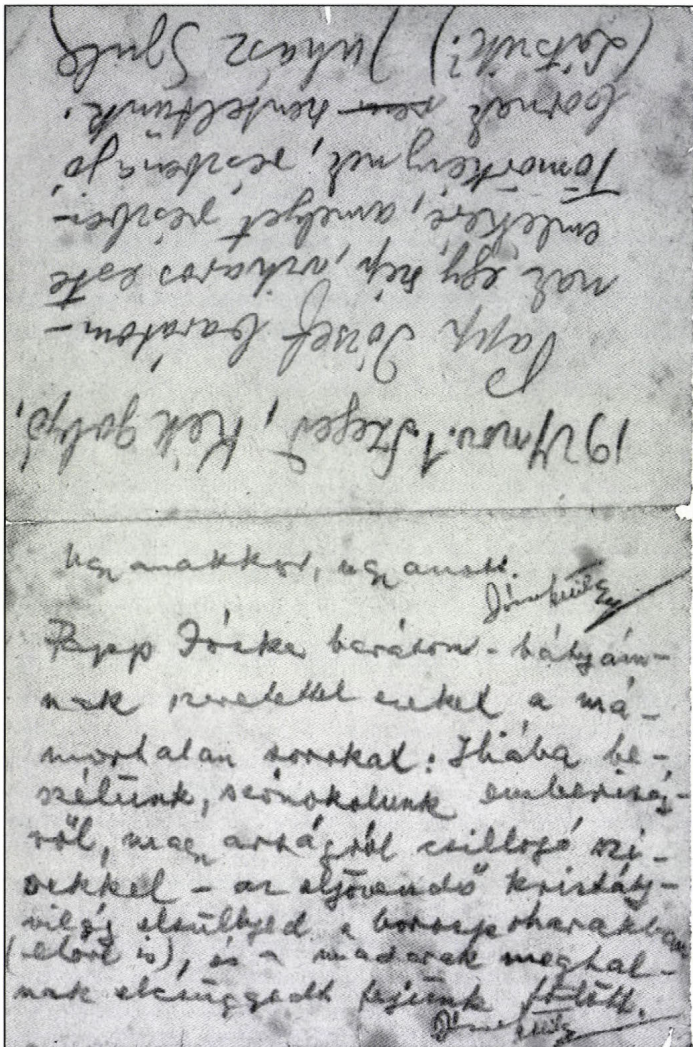 1924 nov. 1. Szeged, Kék golyó,
Papp József barátom-
nak egy szép, viharos este
emlékére, amelyet részben
Tömörkénynek, részben a jó
bornak szenteltünk.
(Látszik?) Juhász Gyula
Ugyanakkor, ugyanott.
József Attila
Papp Jóska barátom-bátyám-
nak szeretettel ezeket a má-
mortalan sorokat: Hiába be-
szélünk, szónokolunk emberiség-
ről, magyarságról csillogó szí-
vekkel – az eljövendő kristály-
világ elsüllyed a borospoharakban
is), és a madarak meghal-
nak elcsüggedt fejünk fölött.
József Attila